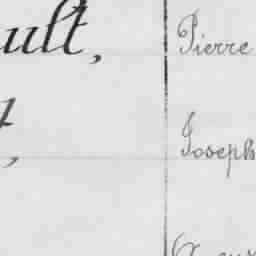 ult, Pierre
Joseph